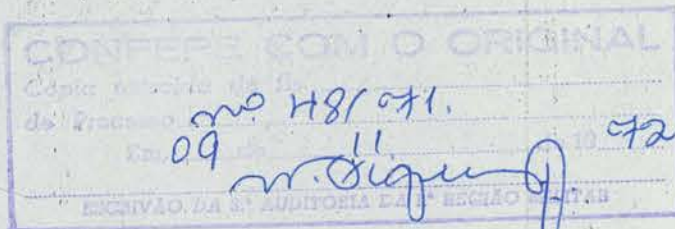 CONFERE COM O ORIGINAL
Cópia extraída de fls
do Processo nº 48/71.
Em, 09 de 11. de 19 72
ESCRIVÃO DA 2ª AUDITORIA DA 2ª REGIÃO MILITAR